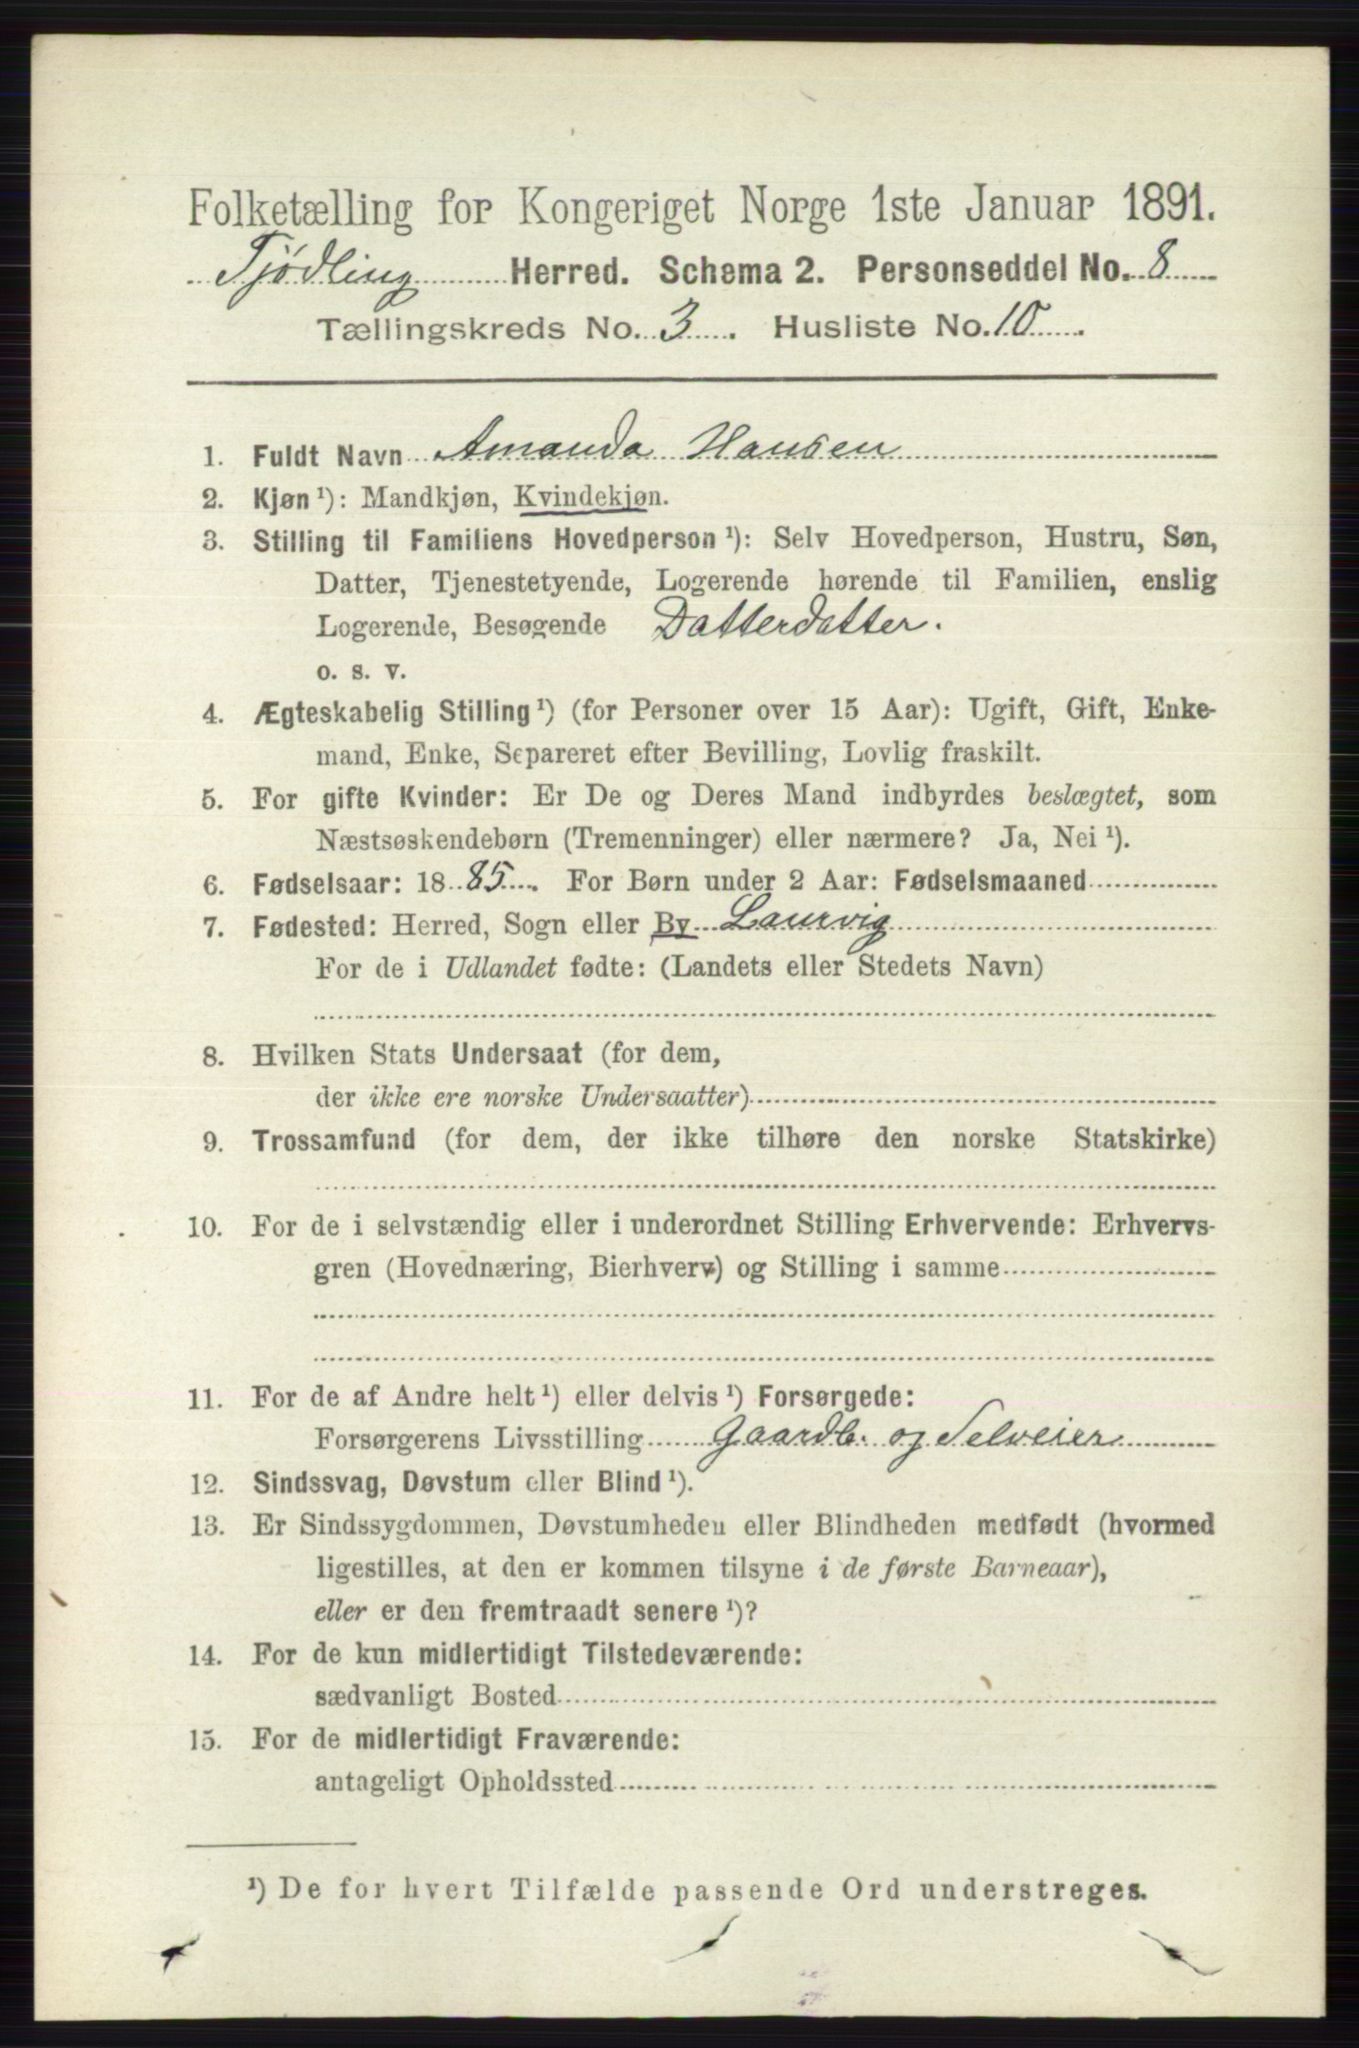 Folketælling for Kongeriget Norge 1ste Januar 1891.
Tjødling Herred. Schema 2. Personseddel No. 8
Tællingskreds No. 3. Husliste No. 10.
1. Fuldt Navn Amanda Hansen
2. Kjøn ¹): Mandkjøn, Kvindekjøn.
3. Stilling til Familiens Hovedperson ¹): Selv Hovedperson, Hustru, Søn,
Datter, Tjenestetyende, Logerende hørende til Familien, enslig
Logerende, Besøgende Datterdatter.
o. s. v.
4. Ægteskabelig Stilling ¹) (for Personer over 15 Aar): Ugift, Gift, Enke-
mand, Enke, Separeret efter Bevilling, Lovlig fraskilt.
5. For gifte Kvinder: Er De og Deres Mand indbyrdes beslægtet, som
Næstsøskendebørn (Tremenninger) eller nærmere? Ja, Nei ¹).
6. Fødselsaar: 1885. For Børn under 2 Aar: Fødselsmaaned
7. Fødested: Herred, Sogn eller By Laurvig
For de i Udlandet fødte: (Landets eller Stedets Navn)
8. Hvilken Stats Undersaat (for dem,
der ikke ere norske Undersaatter)
9. Trossamfund (for dem, der ikke tilhøre den norske Statskirke)
10. For de i selvstændig eller i underordnet Stilling Erhvervende: Erhvervs-
gren (Hovednæring, Bierhverv) og Stilling i samme
11. For de af Andre helt ¹) eller delvis ¹) Forsørgede:
Forsørgerens Livsstilling Gaardb. og Selveier
12. Sindssvag, Døvstum eller Blind ¹).
13. Er Sindssygdommen, Døvstumheden eller Blindheden medfødt (hvormed
ligestilles, at den er kommen tilsyne i de første Barneaar),
eller er den fremtraadt senere ¹)?
14. For de kun midlertidigt Tilstedeværende:
sædvanligt Bosted
15. For de midlertidigt Fraværende:
antageligt Opholdssted
¹) De for hvert Tilfælde passende Ord understreges.